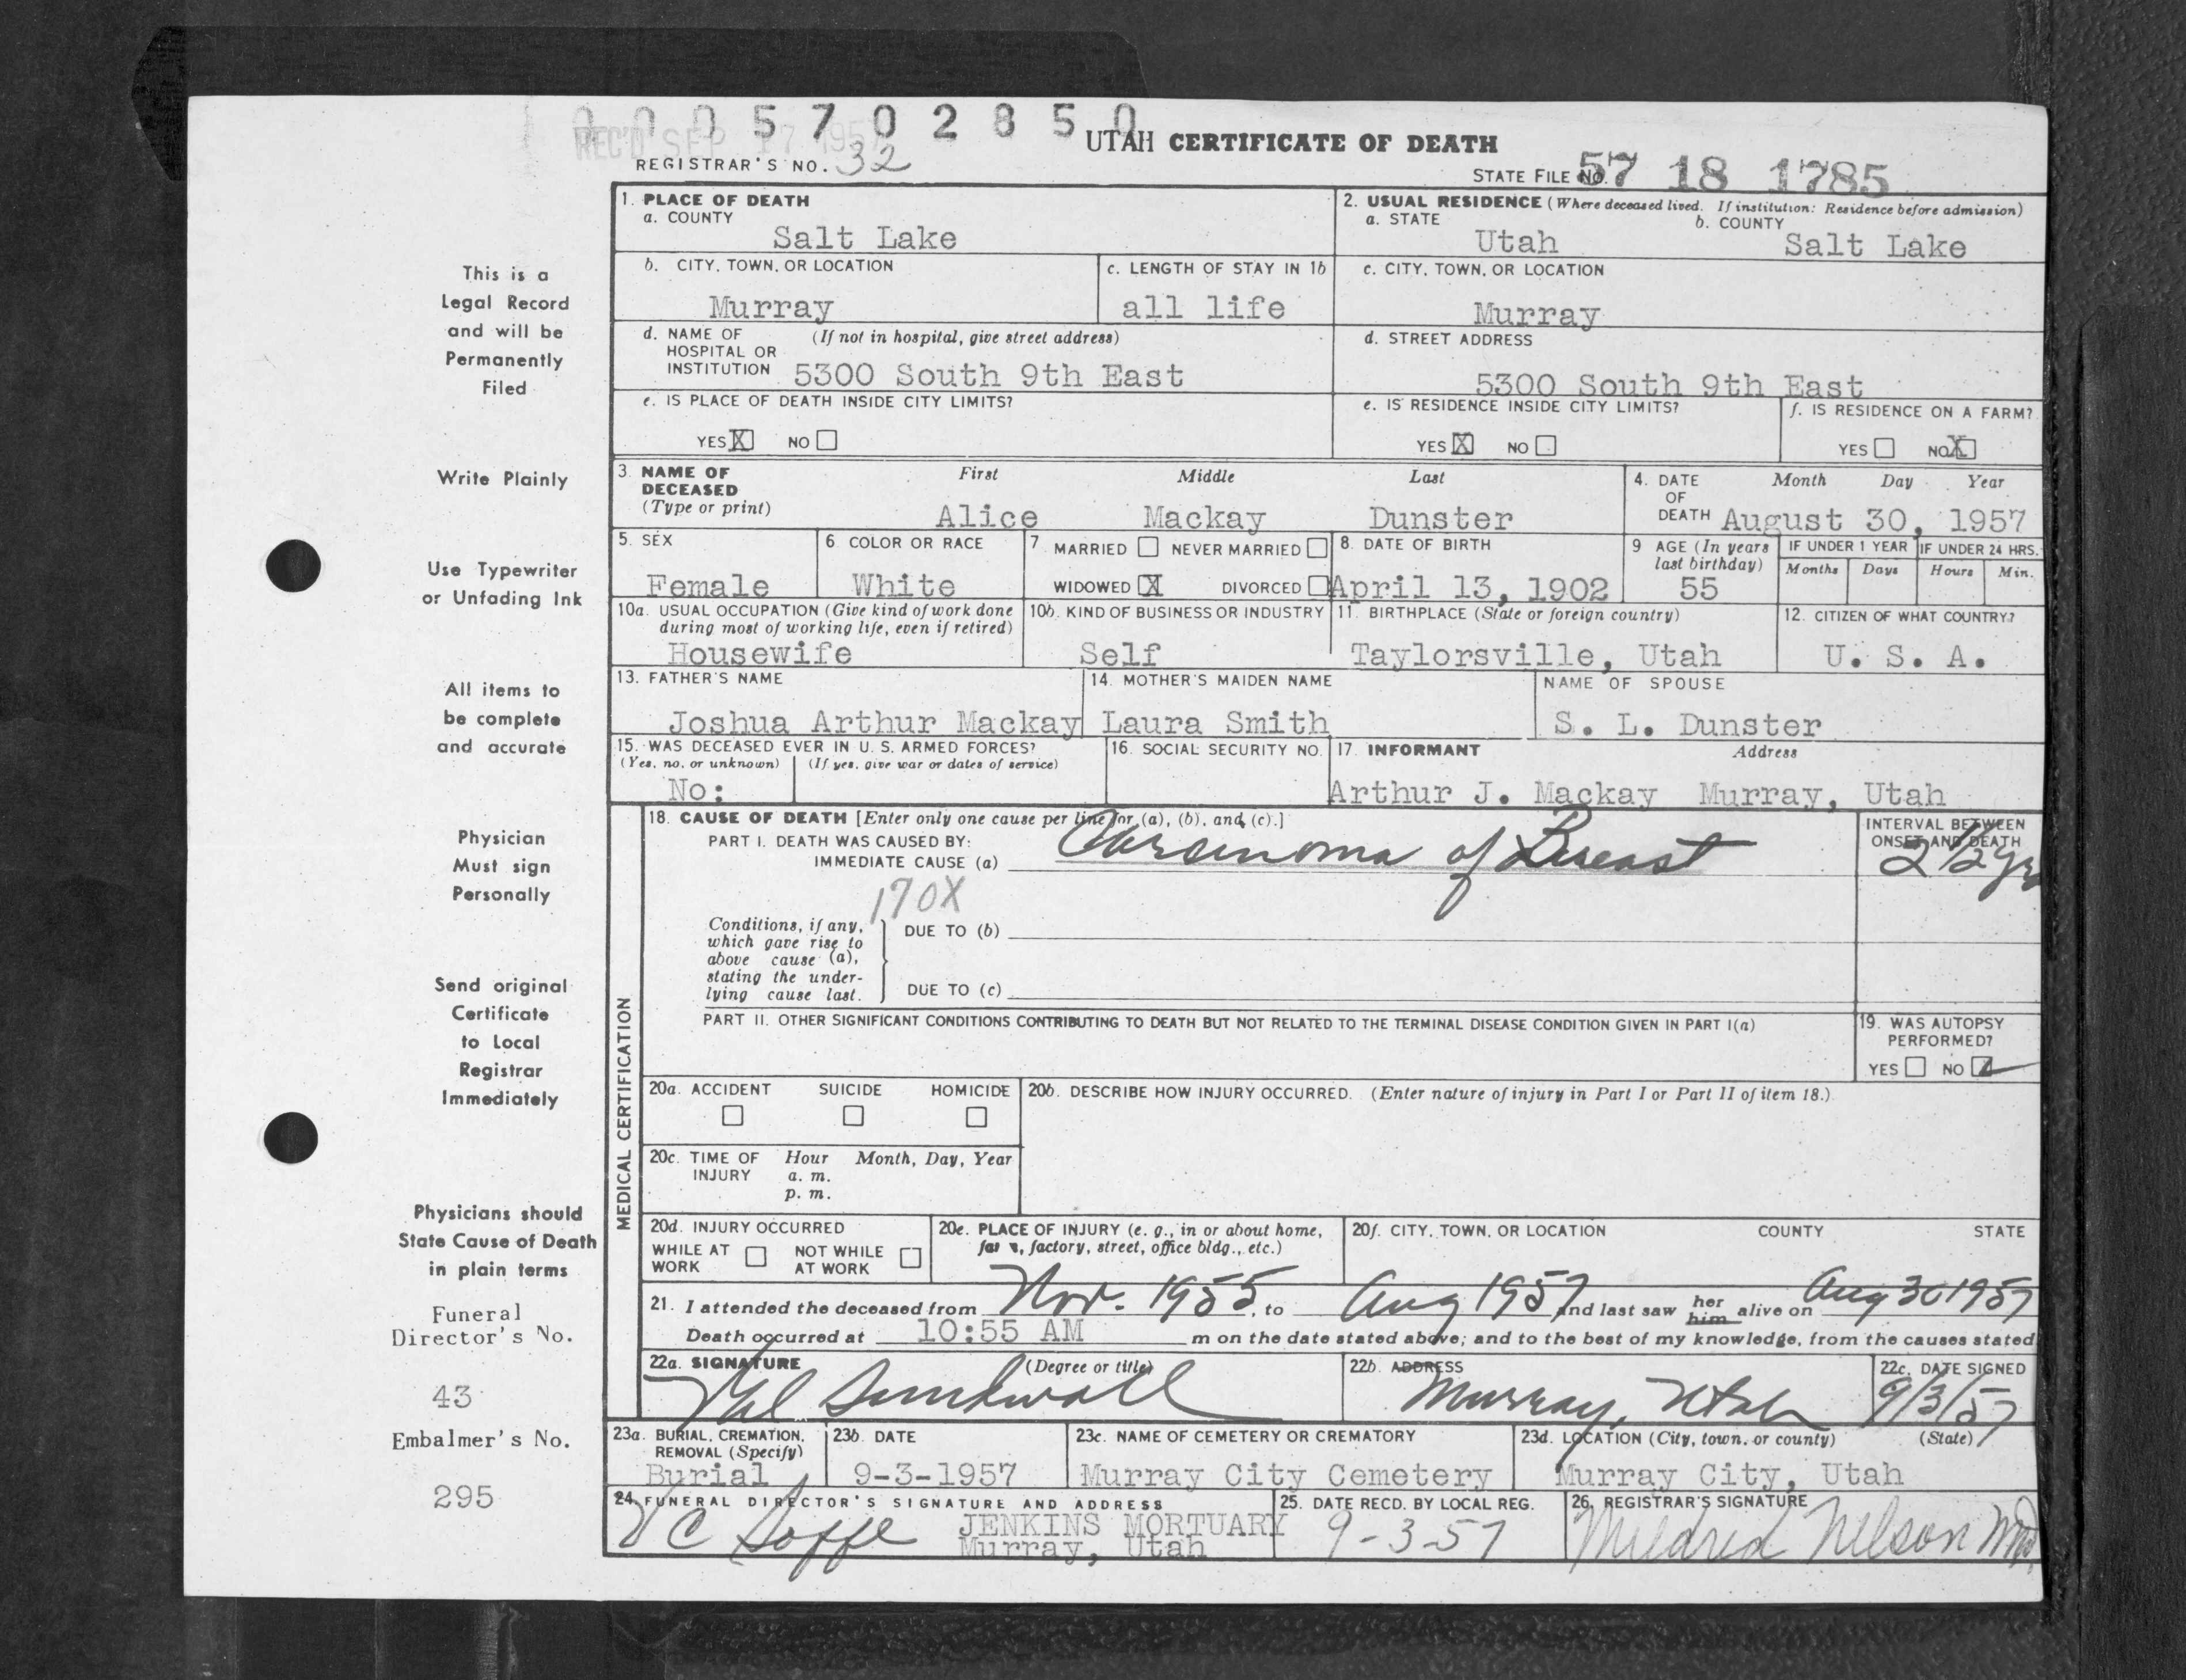 0005702850
REC'D SEP 17 1957
UTAH CERTIFICATE OF DEATH
REGISTRAR'S NO. 32
STATE FILE NO. 57 18 1785
1. PLACE OF DEATH
a. COUNTY
Salt Lake
2. USUAL RESIDENCE (Where deceased lived. If institution: Residence before admission)
a. STATE b. COUNTY
Utah Salt Lake
b. CITY, TOWN, OR LOCATION
Murray
c. LENGTH OF STAY IN 1b
all life
c. CITY, TOWN, OR LOCATION
Murray
d. NAME OF (If not in hospital, give street address)
HOSPITAL OR
INSTITUTION 5300 South 9th East
d. STREET ADDRESS
5300 South 9th East
e. IS PLACE OF DEATH INSIDE CITY LIMITS?
YES X NO
e. IS RESIDENCE INSIDE CITY LIMITS?
YES X NO
f. IS RESIDENCE ON A FARM?
YES NO X
3. NAME OF DECEASED
(Type or print)
First Middle Last
Alice Mackay Dunster
4. DATE OF DEATH
Month Day Year
August 30, 1957
5. SEX
Female
6 COLOR OR RACE
White
7. MARRIED NEVER MARRIED
WIDOWED X DIVORCED
8. DATE OF BIRTH
April 13, 1902
9 AGE (In years last birthday)
55
IF UNDER 1 YEAR
Months Days
IF UNDER 24 HRS.
Hours Min.
10a. USUAL OCCUPATION (Give kind of work done
during most of working life, even if retired)
Housewife
10b. KIND OF BUSINESS OR INDUSTRY
Self
11. BIRTHPLACE (State or foreign country)
Taylorsville, Utah
12. CITIZEN OF WHAT COUNTRY?
U. S. A.
13. FATHER'S NAME
Joshua Arthur Mackay
14. MOTHER'S MAIDEN NAME
Laura Smith
NAME OF SPOUSE
S. L. Dunster
15. WAS DECEASED EVER IN U. S. ARMED FORCES?
(Yes, no, or unknown) (If yes, give war or dates of service)
No:
16. SOCIAL SECURITY NO.
17. INFORMANT Address
Arthur J. Mackay Murray, Utah
18. CAUSE OF DEATH [Enter only one cause per line for (a), (b), and (c).]
PART I. DEATH WAS CAUSED BY:
IMMEDIATE CAUSE (a) Carcinoma of Breast
INTERVAL BETWEEN
ONSET AND DEATH
2 1/2 yrs
170X
Conditions, if any,
which gave rise to
above cause (a),
stating the under-
lying cause last.
DUE TO (b)
DUE TO (c)
PART II. OTHER SIGNIFICANT CONDITIONS CONTRIBUTING TO DEATH BUT NOT RELATED TO THE TERMINAL DISEASE CONDITION GIVEN IN PART I(a)
19. WAS AUTOPSY
PERFORMED?
YES NO
MEDICAL CERTIFICATION
20a. ACCIDENT SUICIDE HOMICIDE
20b. DESCRIBE HOW INJURY OCCURRED. (Enter nature of injury in Part I or Part II of item 18.)
20c. TIME OF INJURY
Hour Month, Day, Year
a. m.
p. m.
20d. INJURY OCCURRED
WHILE AT WORK NOT WHILE AT WORK
20e. PLACE OF INJURY (e. g., in or about home,
farm, factory, street, office bldg., etc.)
20f. CITY, TOWN, OR LOCATION COUNTY STATE
21. I attended the deceased from Nov. 1955, to Aug 1957 and last saw her him alive on Aug 30 1957
Death occurred at 10:55 AM m on the date stated above; and to the best of my knowledge, from the causes stated
22a. SIGNATURE (Degree or title)
Val Sundwall
22b. ADDRESS
Murray, Utah
22c. DATE SIGNED
9/3/57
23a. BURIAL, CREMATION,
REMOVAL (Specify)
Burial
23b. DATE
9-3-1957
23c. NAME OF CEMETERY OR CREMATORY
Murray City Cemetery
23d. LOCATION (City, town, or county) (State)
Murray City, Utah
24. FUNERAL DIRECTOR'S SIGNATURE AND ADDRESS
V C Soffe JENKINS MORTUARY
Murray, Utah
25. DATE RECD. BY LOCAL REG.
9-3-57
26. REGISTRAR'S SIGNATURE
Mildred Nelson
This is a
Legal Record
and will be
Permanently
Filed
Write Plainly
Use Typewriter
or Unfading Ink
All items to
be complete
and accurate
Physician
Must sign
Personally
Send original
Certificate
to Local
Registrar
Immediately
Physicians should
State Cause of Death
in plain terms
Funeral
Director's No.
43
Embalmer's No.
295